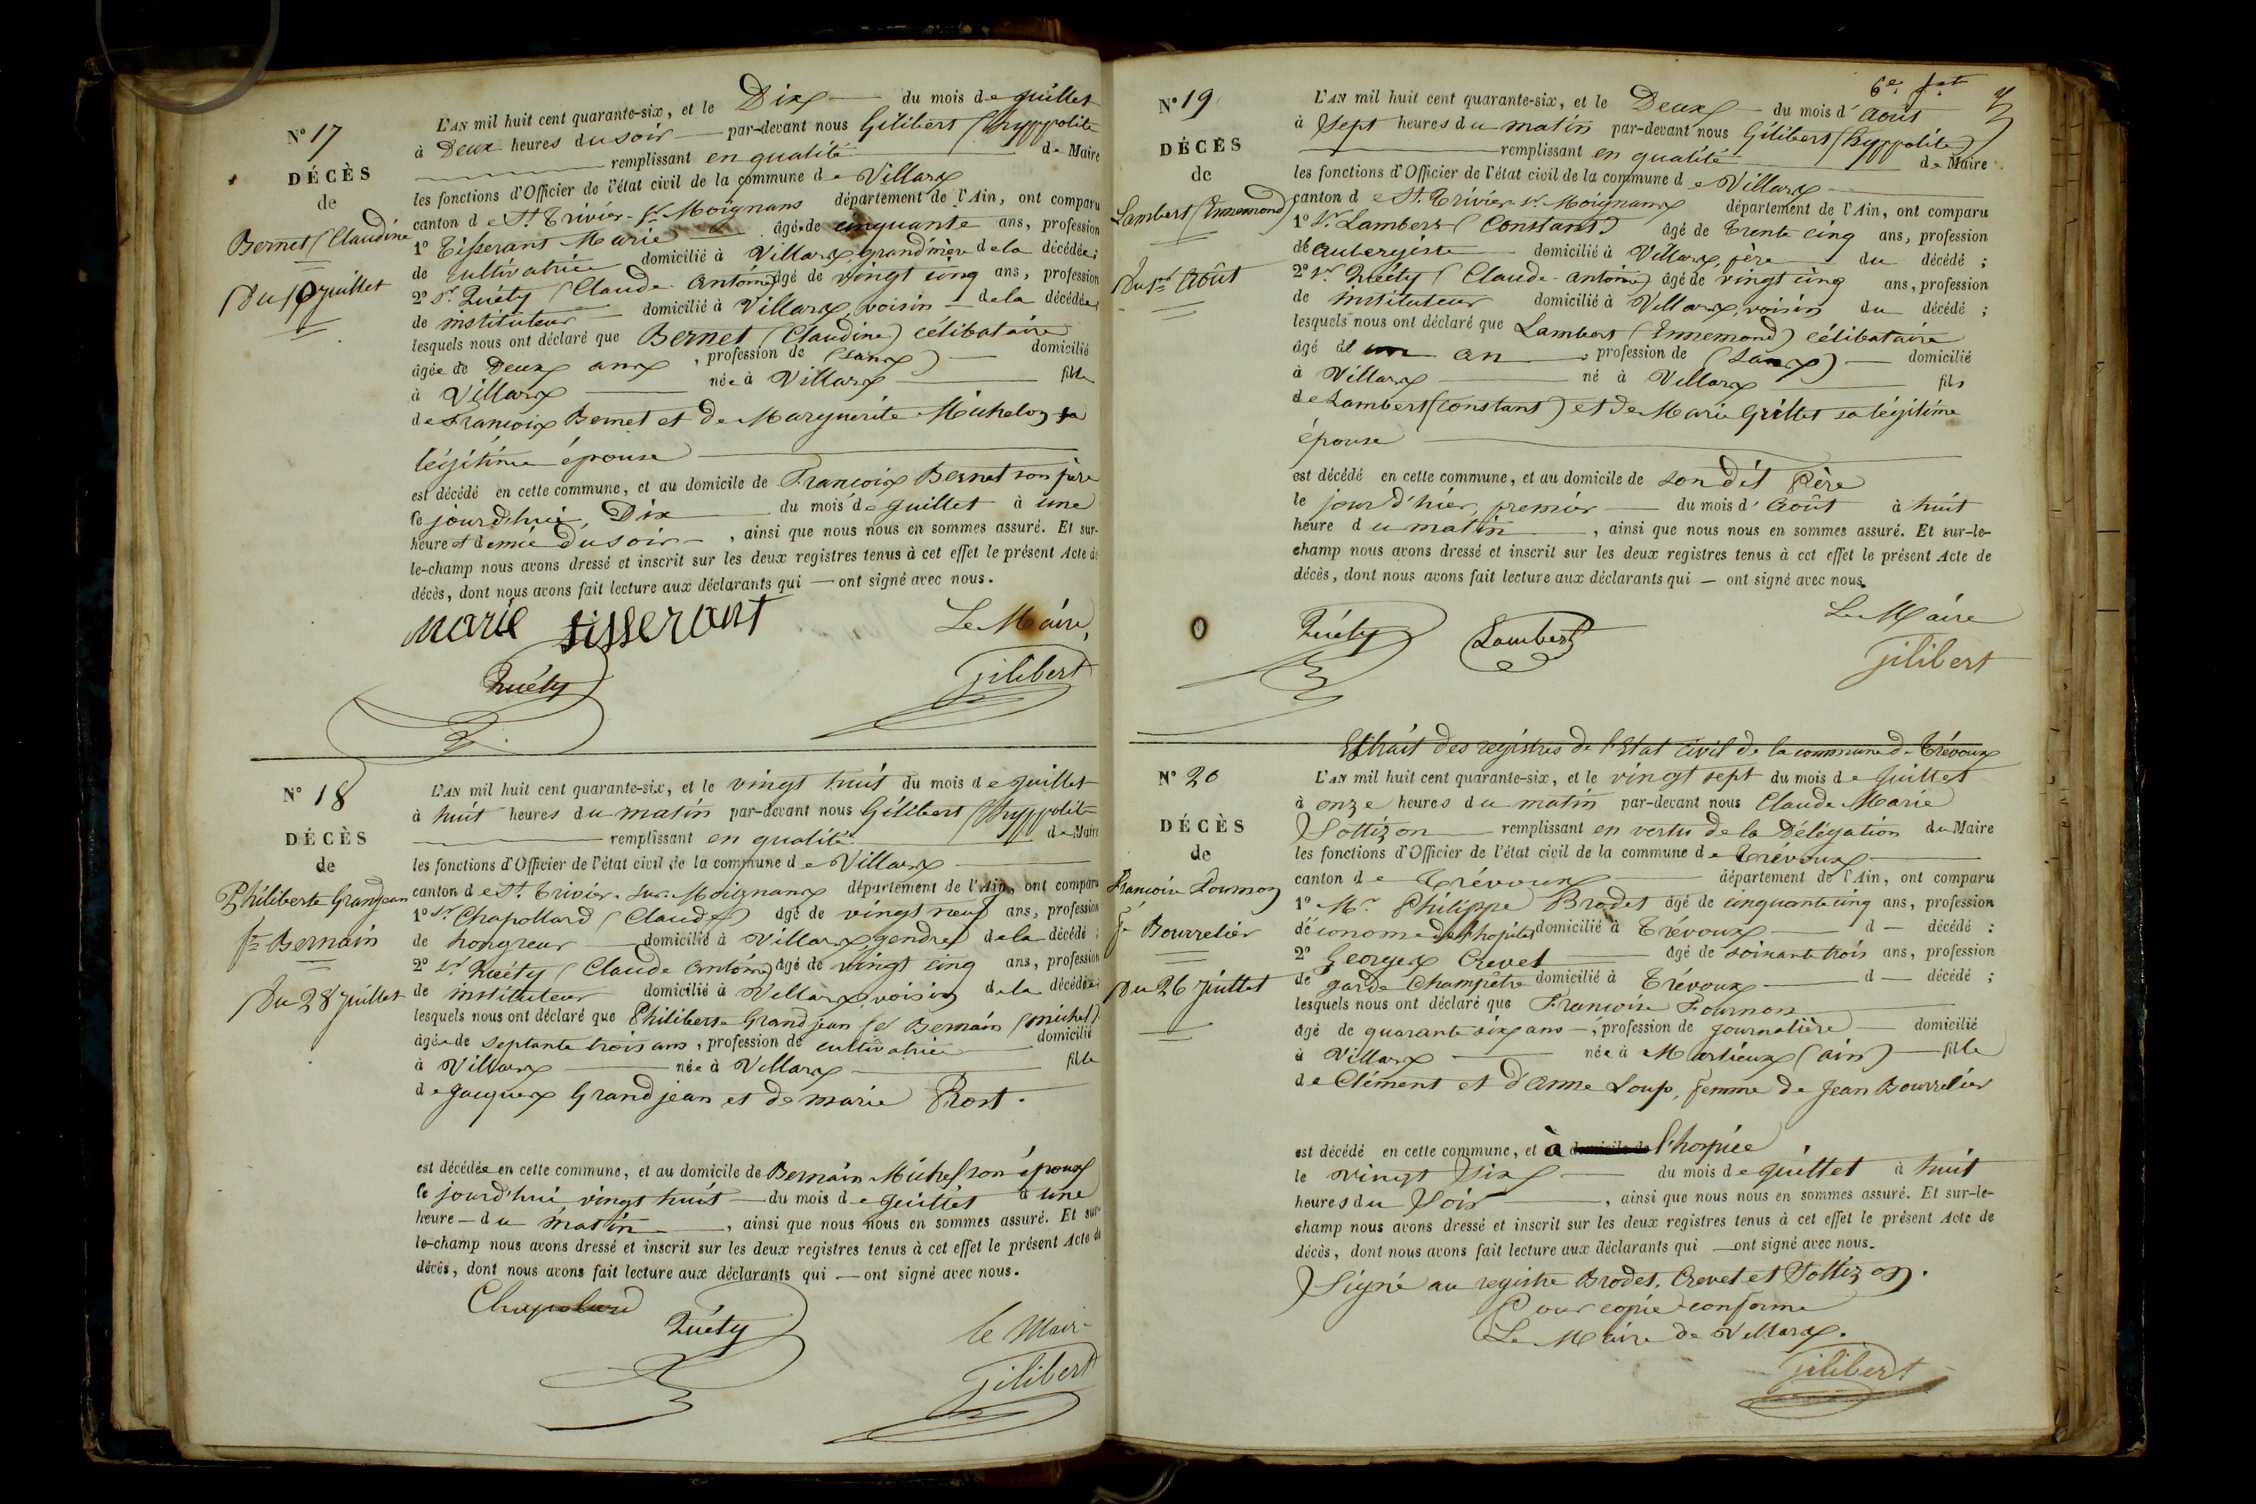 N° 17
DÉCÈS
de
Bernet (Claudine
Du 10 juillet
L'AN mil huit cent quarante-six, et le Dix du mois de juillet
à Deux heures du soir par-devant nous Gilibert (hyppolite
remplissant en qualité de Maire
les fonctions d'Officier de l'état civil de la commune de Villars
canton de St. Trivier-sr-Moignans département de l'Ain, ont comparu
1° Tisserant Marie âgée de cinquante ans, profession
de cultivatrice domicilié à Villars, grand'mère de la décédée;
2° Sr. Quéty (Claude-antoine) âgé de vingt cinq ans, profession
de instituteur domicilié à Villars, voisin de la décédée;
lesquels nous ont déclaré que Bernet (Claudine) célibataire
âgée de Deux ans, profession de (sans) domicilié
à Villars née à Villars fille
de François Bernet et de Marguerite Michelon sa
légitime épouse
est décédé en cette commune, et au domicile de François Bernet son père
le jourd'hui, Dix du mois de juillet à une
heure et demie du soir, ainsi que nous nous en sommes assuré. Et sur-
le-champ nous avons dressé et inscrit sur les deux registres tenus à cet effet le présent Acte de
décès, dont nous avons fait lecture aux déclarants qui — ont signé avec nous.
marie tisserant
Le Maire,
Quéty
Gilibert
N° 18
DÉCÈS
de
Philiberte Grandjean
fe Bernain
Du 28 juillet
L'AN mil huit cent quarante-six, et le vingt huit du mois de juillet
à huit heures du matin par-devant nous Gilibert (hyppolite
remplissant en qualité de Maire
les fonctions d'Officier de l'état civil de la commune de Villars
canton de St. Trivier-sur-Moignans département de l'Ain, ont comparu
1° Sr Chapollard (Claude) âgé de vingt neuf ans, profession
de hongreur domicilié à Villars, gendre de la décédé;
2° Sr. Quéty (Claude antoine) âgé de vingt cinq ans, profession
de instituteur domicilié à Villars, voisin de la décédée;
lesquels nous ont déclaré que Philiberte Grandjean fe Bernain (michel)
âgée de septante trois ans, profession de cultivatrice domicilié
à Villars née à Villars fille
de Jacques Grandjean et de marie Prost.
est décédée en cette commune, et au domicile de Bernain Michel son époux
le jourd'hui vingt huit du mois de juillet à une
heure — du matin, ainsi que nous nous en sommes assuré. Et sur-
le-champ nous avons dressé et inscrit sur les deux registres tenus à cet effet le présent Acte de
décès, dont nous avons fait lecture aux déclarants qui — ont signé avec nous.
Chapolard
Quéty
le Maire
Gilibert
6e. fet
N° 19
DÉCÈS
de
Lambert (Ennemond)
Du 1er Août
L'AN mil huit cent quarante-six, et le Deux du mois d'Août
à Sept heures du matin par-devant nous Gilibert (hyppolite)
remplissant en qualité de Maire
les fonctions d'Officier de l'état civil de la commune de Villars
canton de St. Trivier-sr-Moignans département de l'Ain, ont comparu
1° Sr. Lambert (Constant) âgé de Trente cinq ans, profession
de aubergiste domicilié à Villars, père du décédé;
2° Sr Quéty (Claude-antoine) âgé de vingt cinq ans, profession
de instituteur domicilié à Villars, voisin du décédé;
lesquels nous ont déclaré que Lambert (Ennemond) célibataire
âgé de un an, profession de (sans) domicilié
à Villars né à Villars fils
de Lambert (constant) et de Marie Grillet sa légitime
épouse
est décédé en cette commune, et au domicile de son dit Père
le jour d'hier, premier du mois d'Août à huit
heure du matin, ainsi que nous nous en sommes assuré. Et sur-le-
champ nous avons dressé et inscrit sur les deux registres tenus à cet effet le présent Acte de
décès, dont nous avons fait lecture aux déclarants qui — ont signé avec nous.
Le Maire
Quéty
Lambert
Gilibert
Extrait des registres de l'Etat Civil de la commune de Trévoux
N° 20
DÉCÈS
de
Françoise Fournon
fe Bourrelier
Du 26 juillet
L'AN mil huit cent quarante-six, et le vingt sept du mois de juillet
à onze heures du matin par-devant nous Claude Marie
Sottizon remplissant en vertu de la Délégation du Maire
les fonctions d'Officier de l'état civil de la commune de Trévoux
canton de Trévoux département de l'Ain, ont comparu
1° Mr. Philippe Brodet âgé de cinquante cinq ans, profession
d'économe de l'hopital domicilié à Trévoux d — décédé;
2° Georges Crevet âgé de soixante trois ans, profession
de garde Champêtre domicilié à Trévoux d — décédé;
lesquels nous ont déclaré que Françoise Fournon
âgé de quarante six ans, profession de journalière domicilié
à Villars née à Marlieux (ain) fille
de Clément et d'Anne Loup, femme de Jean Bourrelier
est décédé en cette commune, et à domicile de l'hospice
le vingt Six du mois de juillet à huit
heures du Soir, ainsi que nous nous en sommes assuré. Et sur-le-
champ nous avons dressé et inscrit sur les deux registres tenus à cet effet le présent Acte de
décès, dont nous avons fait lecture aux déclarants qui — ont signé avec nous.
Signé au registre Brodet, Crevet et Sottizon.
Pour copie conforme
Le Maire de Villars.
Gilibert